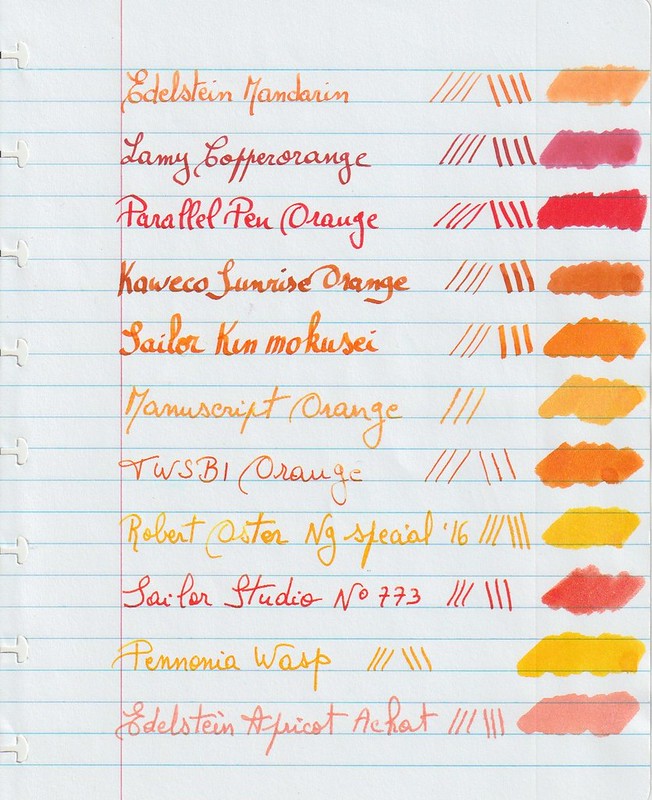 Edelstein Mandarin
Lamy Copperorange
Parallel Pen Orange
Kaweco Sunrise Orange
Sailor Kin mokusei
Manuscript Orange
TWSBI Orange
Robert Oster Ng special '16
Sailor Studio Nº 773
Pennonia Wasp
Edelstein Apricot Achat